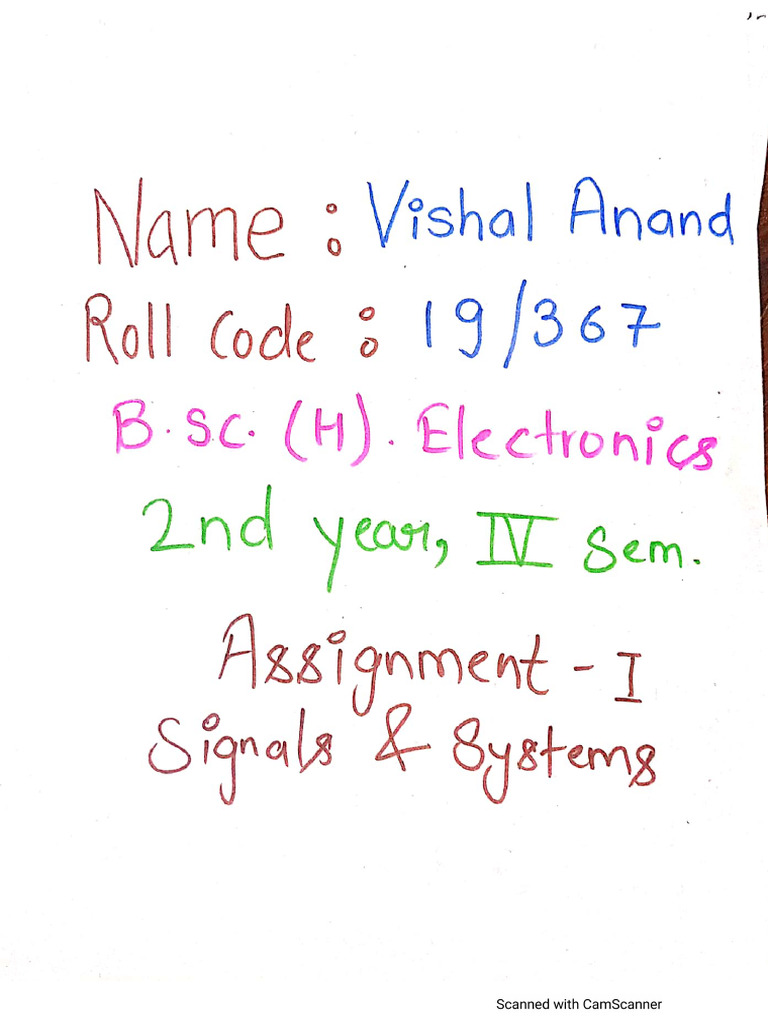 Name : Vishal Anand
Roll Code : 19/367
B.Sc. (H). Electronics
2nd year, IV Sem.
Assignment - I
Signals & Systems
Scanned with CamScanner